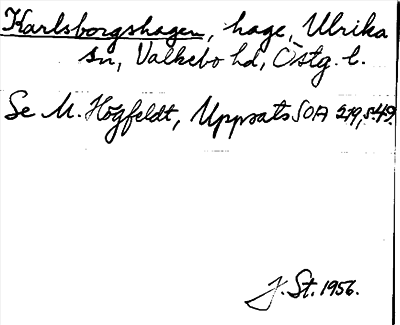 Karlsborgshagen, hage, Ulrika
sn, Valkebo hd, Östg. l.
Se M. Högfeldt, Uppsats SOA 279, s. 49.
J. St. 1956.